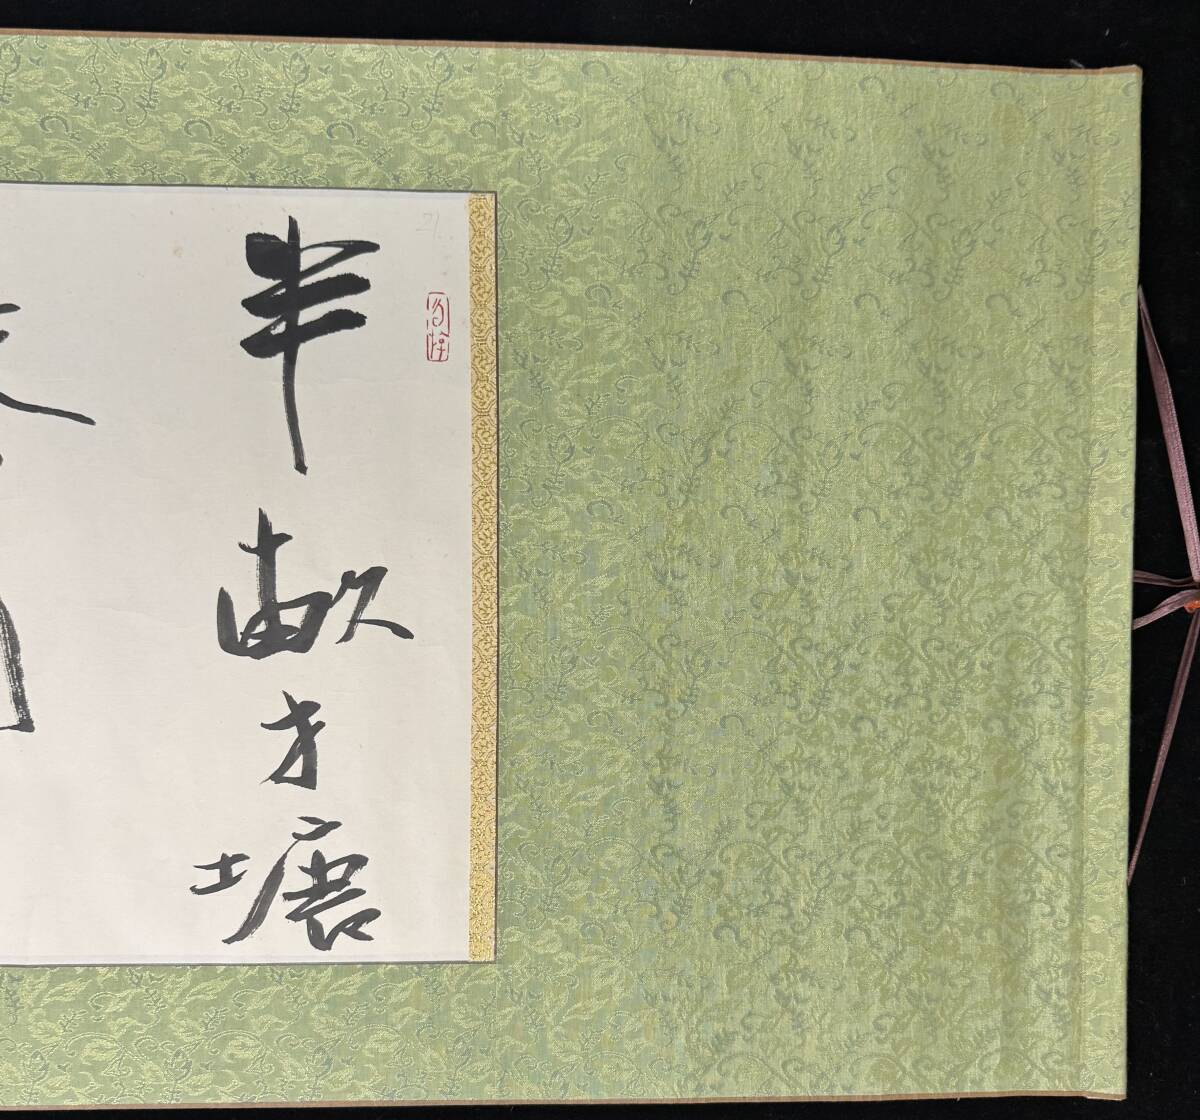 21.
半畝方塘